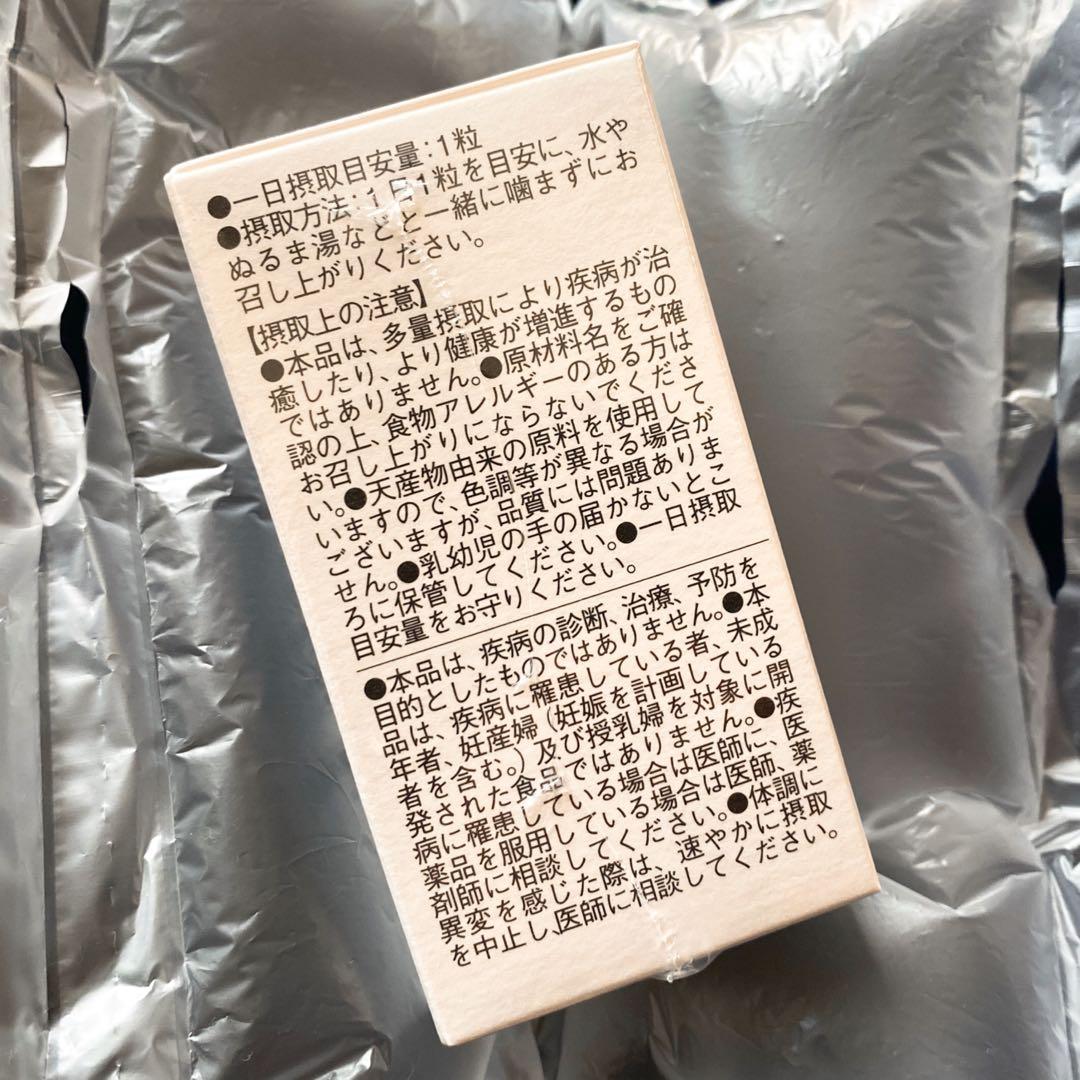 ●一日摂取目安量：1粒
●摂取方法：1日1粒を目安に、水や
ぬるま湯などと一緒に噛まずにお
召し上がりください。
【摂取上の注意】
●本品は、多量摂取により疾病が治
癒したり、より健康が増進するもの
ではありません。●原材料名をご確
認の上、食物アレルギーのある方は
お召し上がりにならないでくださ
い。●天産物由来の原料を使用して
いますので、色調等が異なる場合が
ございますが、品質には問題ありま
せん。●乳幼児の手の届かないとこ
ろに保管してください。●一日摂取
目安量をお守りください。
●本品は、疾病の診断、治療、予防を
目的としたものではありません。●本
品は、疾病に罹患している者、未成
年者、妊産婦（妊娠を計画している
者を含む。）及び授乳婦を対象に開
発された食品ではありません。●疾
病に罹患している場合は医師に、医
薬品を服用している場合は医師、薬
剤師に相談してください。●体調に
異変を感じた際は、速やかに摂取
を中止し、医師に相談してください。